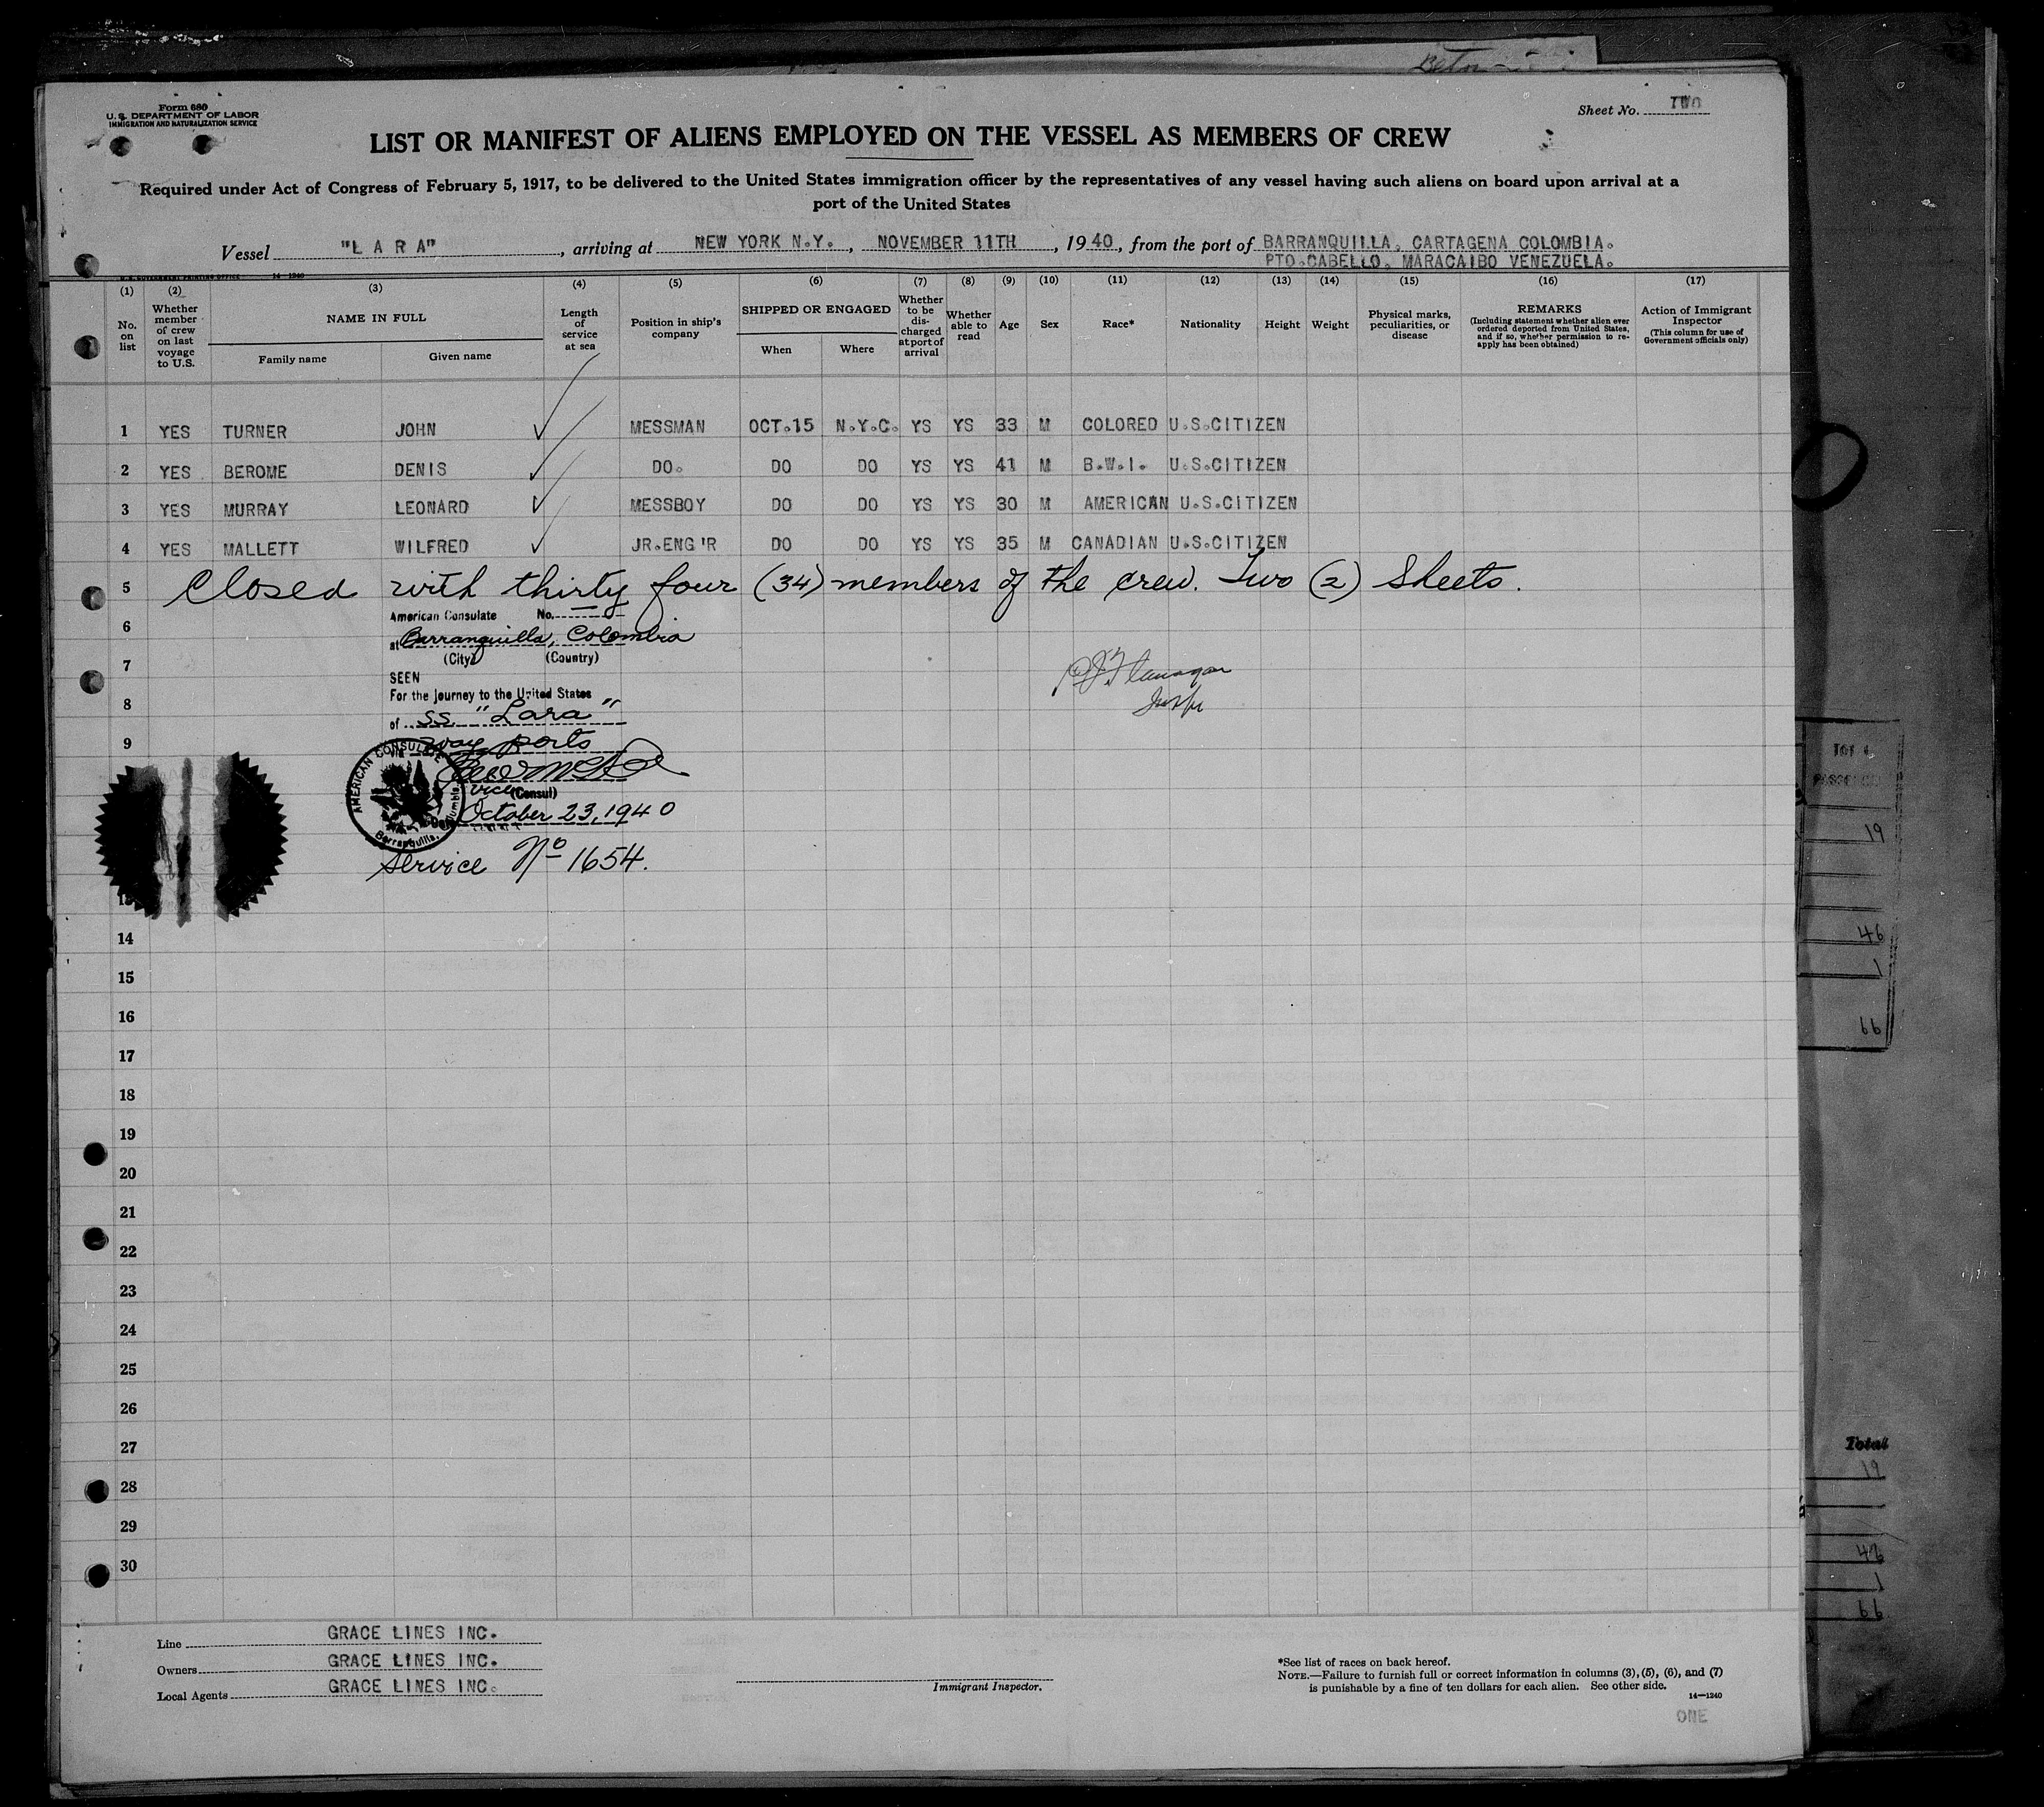 Form 680
U. S. DEPARTMENT OF LABOR
IMMIGRATION AND NATURALIZATION SERVICE
Sheet No. TWO
LIST OR MANIFEST OF ALIENS EMPLOYED ON THE VESSEL AS MEMBERS OF CREW
Required under Act of Congress of February 5, 1917, to be delivered to the United States immigration officer by the representatives of any vessel having such aliens on board upon arrival at a
port of the United States
Vessel "LARA", arriving at NEW YORK N.Y., NOVEMBER 11TH, 1940, from the port of BARRANQUILLA. CARTAGENA COLOMBIA.
PTO.CABELLO. MARACAIBO VENEZUELA.
U.S. GOVERNMENT PRINTING OFFICE 14—1240
(1) (2) (3) (4) (5) (6) (7) (8) (9) (10) (11) (12) (13) (14) (15) (16) (17)
No. on list
Whether member of crew on last voyage to U.S.
NAME IN FULL
Family name
Given name
Length of service at sea
Position in ship's company
SHIPPED OR ENGAGED
When
Where
Whether to be discharged at port of arrival
Whether able to read
Age
Sex
Race*
Nationality
Height
Weight
Physical marks, peculiarities, or disease
REMARKS
(Including statement whether alien ever ordered deported from United States, and if so, whether permission to reapply has been obtained)
Action of Immigrant Inspector
(This column for use of Government officials only)
1 YES TURNER JOHN MESSMAN OCT.15 N.Y.C. YS YS 33 M COLORED U.S.CITIZEN
2 YES BEROME DENIS DO. DO DO YS YS 41 M B.W.I. U.S.CITIZEN
3 YES MURRAY LEONARD MESSBOY DO DO YS YS 30 M AMERICAN U.S.CITIZEN
4 YES MALLETT WILFRED JR.ENG'R DO DO YS YS 35 M CANADIAN U.S.CITIZEN
5 Closed with thirty four (34) members of the crew. Two (2) Sheets.
American Consulate No. —
6
at Barranquilla, Colombia
(City) (Country)
7
SEEN
For the journey to the United States
8
of ss. "Lara"
9
way ports
AMERICAN CONSULATE
Barranquilla, Columbia
vice (Consul)
October 23, 1940
Service No 1654.
13
14
15
16
17
18
19
20
21
22
23
24
25
26
27
28
29
30
Line GRACE LINES INC.
Owners GRACE LINES INC.
Local Agents GRACE LINES INC.
Immigrant Inspector.
*See list of races on back hereof.
NOTE.—Failure to furnish full or correct information in columns (3), (5), (6), and (7)
is punishable by a fine of ten dollars for each alien. See other side.
14—1240
ONE
19
46
1
66
Total
19
46
1
66